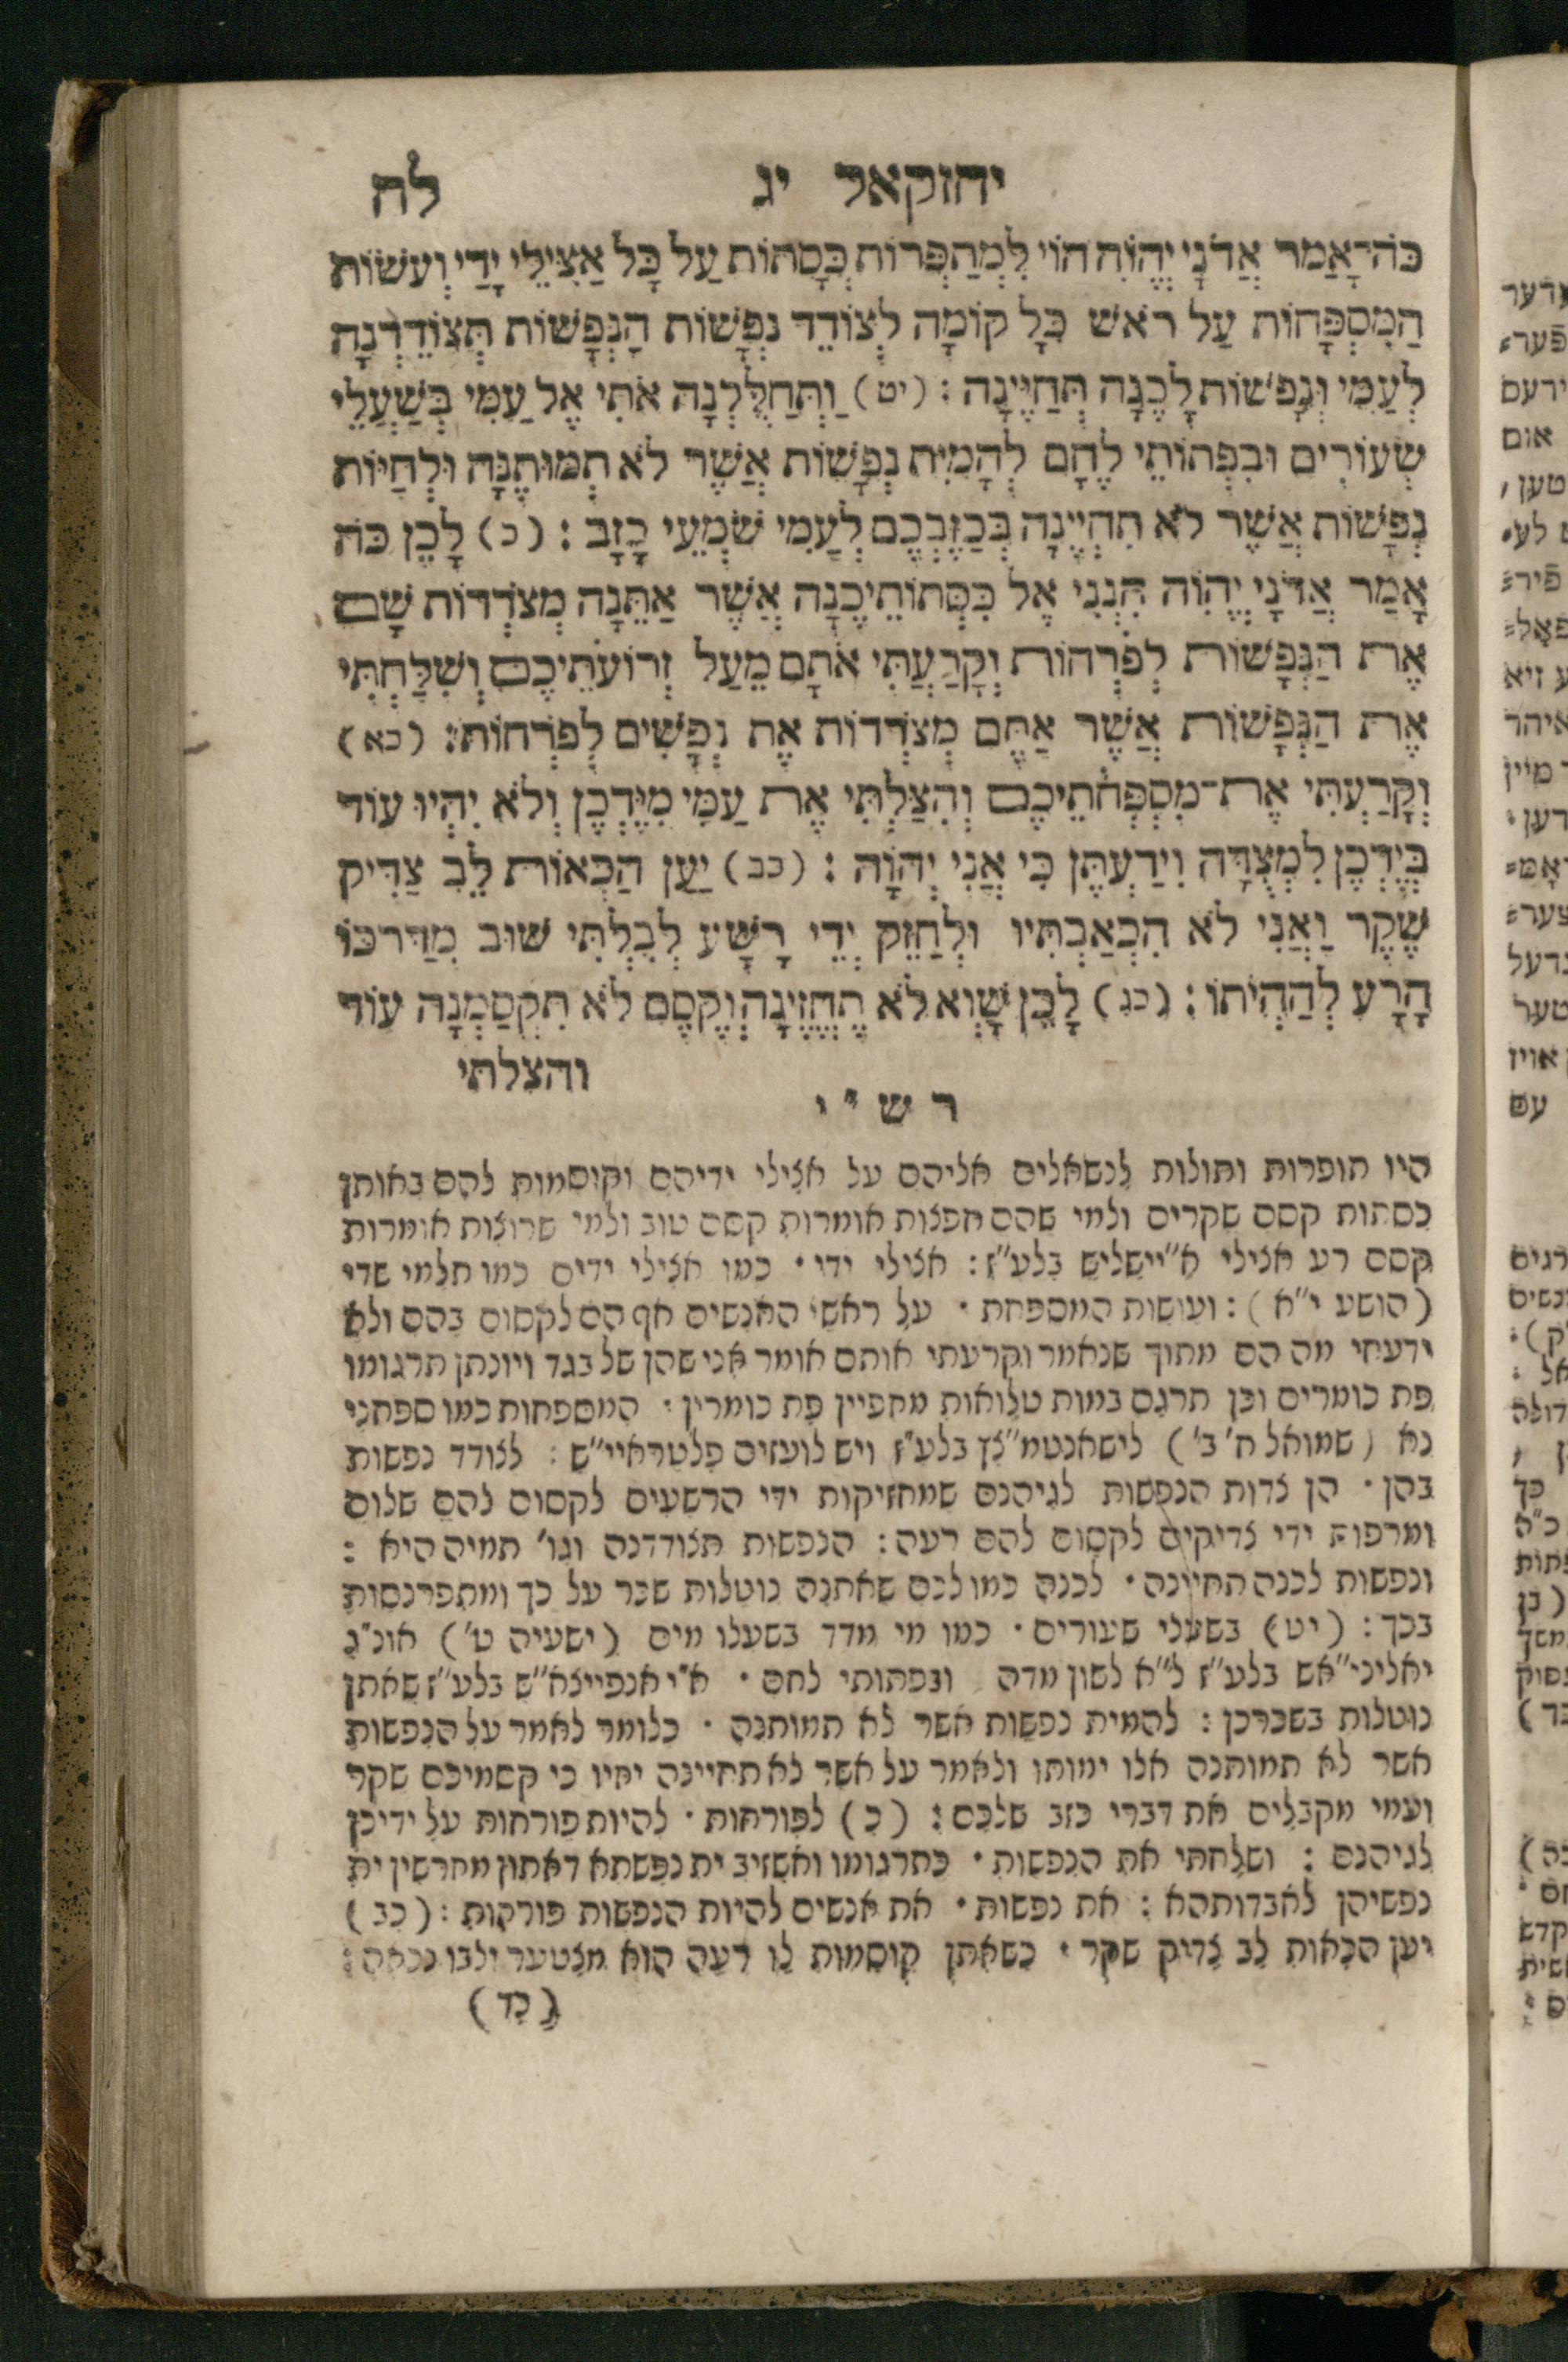 יחזקאל יג לח
כֹּה־אָמַר אֲדֹנָי יֱהֹוִה הוֹי לִמְתַפְּרוֹת כְּסָתוֹת עַל כָּל אַצִּילֵי יָדַי וְעֹשׂוֹת
הַמִּסְפָּחוֹת עַל רֹאשׁ כָּל קוֹמָה לְצוֹדֵד נְפָשׁוֹת הַנְּפָשׁוֹת תְּצוֹדֵדְנָה
לְעַמִּי וּנְפָשׁוֹת לָכֶנָה תְּחַיֶּינָה : (יט) וַתְּחַלֶּלְנָה אֹתִי אֶל עַמִּי בְּשַׁעֲלֵי
שְׂעוֹרִים וּבִפְתוֹתֵי לֶחֶם לְהָמִית נְפָשׁוֹת אֲשֶׁר לֹא תְמוּתֶנָּה וּלְחַיּוֹת
נְפָשׁוֹת אֲשֶׁר לֹא תִחְיֶינָה בְּכַזֶּבְכֶם לְעַמִּי שֹׁמְעֵי כָזָב : (כ) לָכֵן כֹּה
אָמַר אֲדֹנָי יֱהֹוִה הִנְנִי אֶל כִּסְּתוֹתֵיכֶנָה אֲשֶׁר אַתֵּנָה מְצֹדְדוֹת שָׁם
אֶת הַנְּפָשׁוֹת לְפֹרְחוֹת וְקָרַעְתִּי אֹתָם מֵעַל זְרוֹעֹתֵיכֶם וְשִׁלַּחְתִּי
אֶת הַנְּפָשׁוֹת אֲשֶׁר אַתֶּם מְצֹדְדוֹת אֶת נְפָשִׁים לְפֹרְחוֹת : (כא)
וְקָרַעְתִּי אֶת־מִסְפְּחֹתֵיכֶם וְהִצַּלְתִּי אֶת עַמִּי מִיֶּדְכֶן וְלֹא יִהְיוּ עוֹד
בְּיֶדְכֶן לִמְצֻדָה וִידַעְתֶּן כִּי אֲנִי יְהוָֹה : (כב) יַעַן הַכְאוֹת לֵב צַדִּיק
שֶׁקֶר וַאֲנִי לֹא הִכְאַבְתִּיו וּלְחַזֵּק יְדֵי רָשָׁע לְבִלְתִּי שׁוּב מִדַּרכּוֹ
הָרָע לְהַחֲיֹתוֹ : (כג) לָכֵן שָׁוְא לֹא תֶחֱזֶינָה וְקֶסֶם לֹא תִקְסַמְנָה עוֹד
והצלתי
ר ש " י
היו תופרות ותולות לנשאלים אליהם על אצילי ידיהם וקוסמות להם באותן
כסתות קסם שקרים ולמי שהם חפצות אומרות קסם טוב ולמי שרוצות אומרות
קסם רע אצילי א"יישליש בלע"ז : אצילי ידי · כמו אצילי ידים כמו חלמי שדי
(הושע י"א) : ועושות המספחת · על ראשי האנשים אף הם לקסום בהם ולא
ידעתי מה הם מתוך שנאמר וקרעתי אותם אומר אני שהן של בגד ויונתן תרגומו
פת כומרים וכן תרגם במות טלואות מחפיין פת כומרין : המספחות כמו ספחני
נא (שמואל ח' ב') לישאנטמ"נץ בלע"ז ויש לועזים פלטראיי"ש : לצודד נפשות
בהן · הן צדות הנפשות לגיהנם שמחזיקות ידי הרשעים לקסום להם שלום
ומרפות ידי צדיקים לקסום להם רעה : הנפשות תצודדנה וגו' תמיה היא :
ונפשות לכנה תחיינה · לכנה כמו לכם שאתנה נוטלות שכר על כך ומתפרנסות
בכך : (יט) בשעלי שעורים · כמו מי מדד בשעלו מים (ישעיה ט') אונ"ג
יאליני"אש בלע"ז ל"א לשון מדה ובפתותי לחם · א"י אנפיינא"ש בלע"ז שאתן
נוטלות בשכרכן : להמית נפשות אשר לא תמותנה · כלומר לאמר על הנפשות
אשר לא תמותנה אלו ימותו ולאמר על אשר לא תחיינה יחיו כי קסמיכם שקר
ועמי מקבלים את דברי כזב שלכם : (כ) לפורחות · להיות פורחות על ידיכן
לגיהנם : ושלחתי את הנפשות · כתרגומו ואשזיב ית נפשתא דאתון מחרשין ית
נפשיהן לאבדותהא : את נפשות · את אנשים להיות הנפשות פורקות : (כב)
יען הכאות לב צדיק שקר · כשאתן קוסמות לו רעה הוא מצטער ולבו נכאה :
(כד)